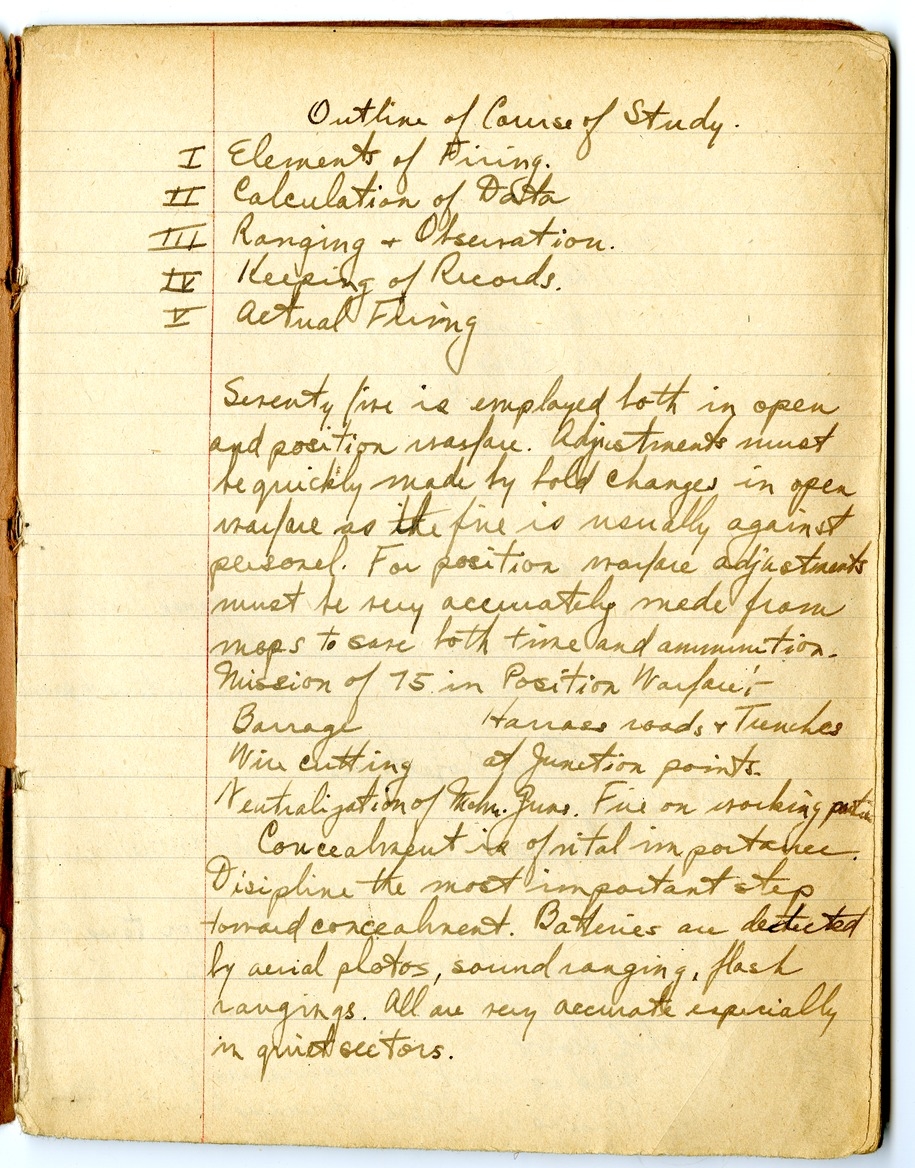 Outline of Course of Study.
I Elements of Firing.
II Calculation of Data
III Ranging + Observation.
IV Keeping of Records.
V Actual Firing
Seventy five is employed both in open
and position warfare. Adjustments must
be quickly made by bold changes in open
warfare as the fire is usually against
personel. For position warfare adjustments
must be very accurately made from
maps to save both time and ammunition.
Mission of 75 in Position Warfare:-
Barrage Harrass roads + Trenches
Wire cutting at Junction points.
Neutralization of Mchn. Guns. Fire on working parties
Concealment is of vital importance.
Disipline the most important step
toward concealment. Batteries are detected
by aerial photos, sound ranging, flash
rangings. All are very accurate especially
in quiet sectors.